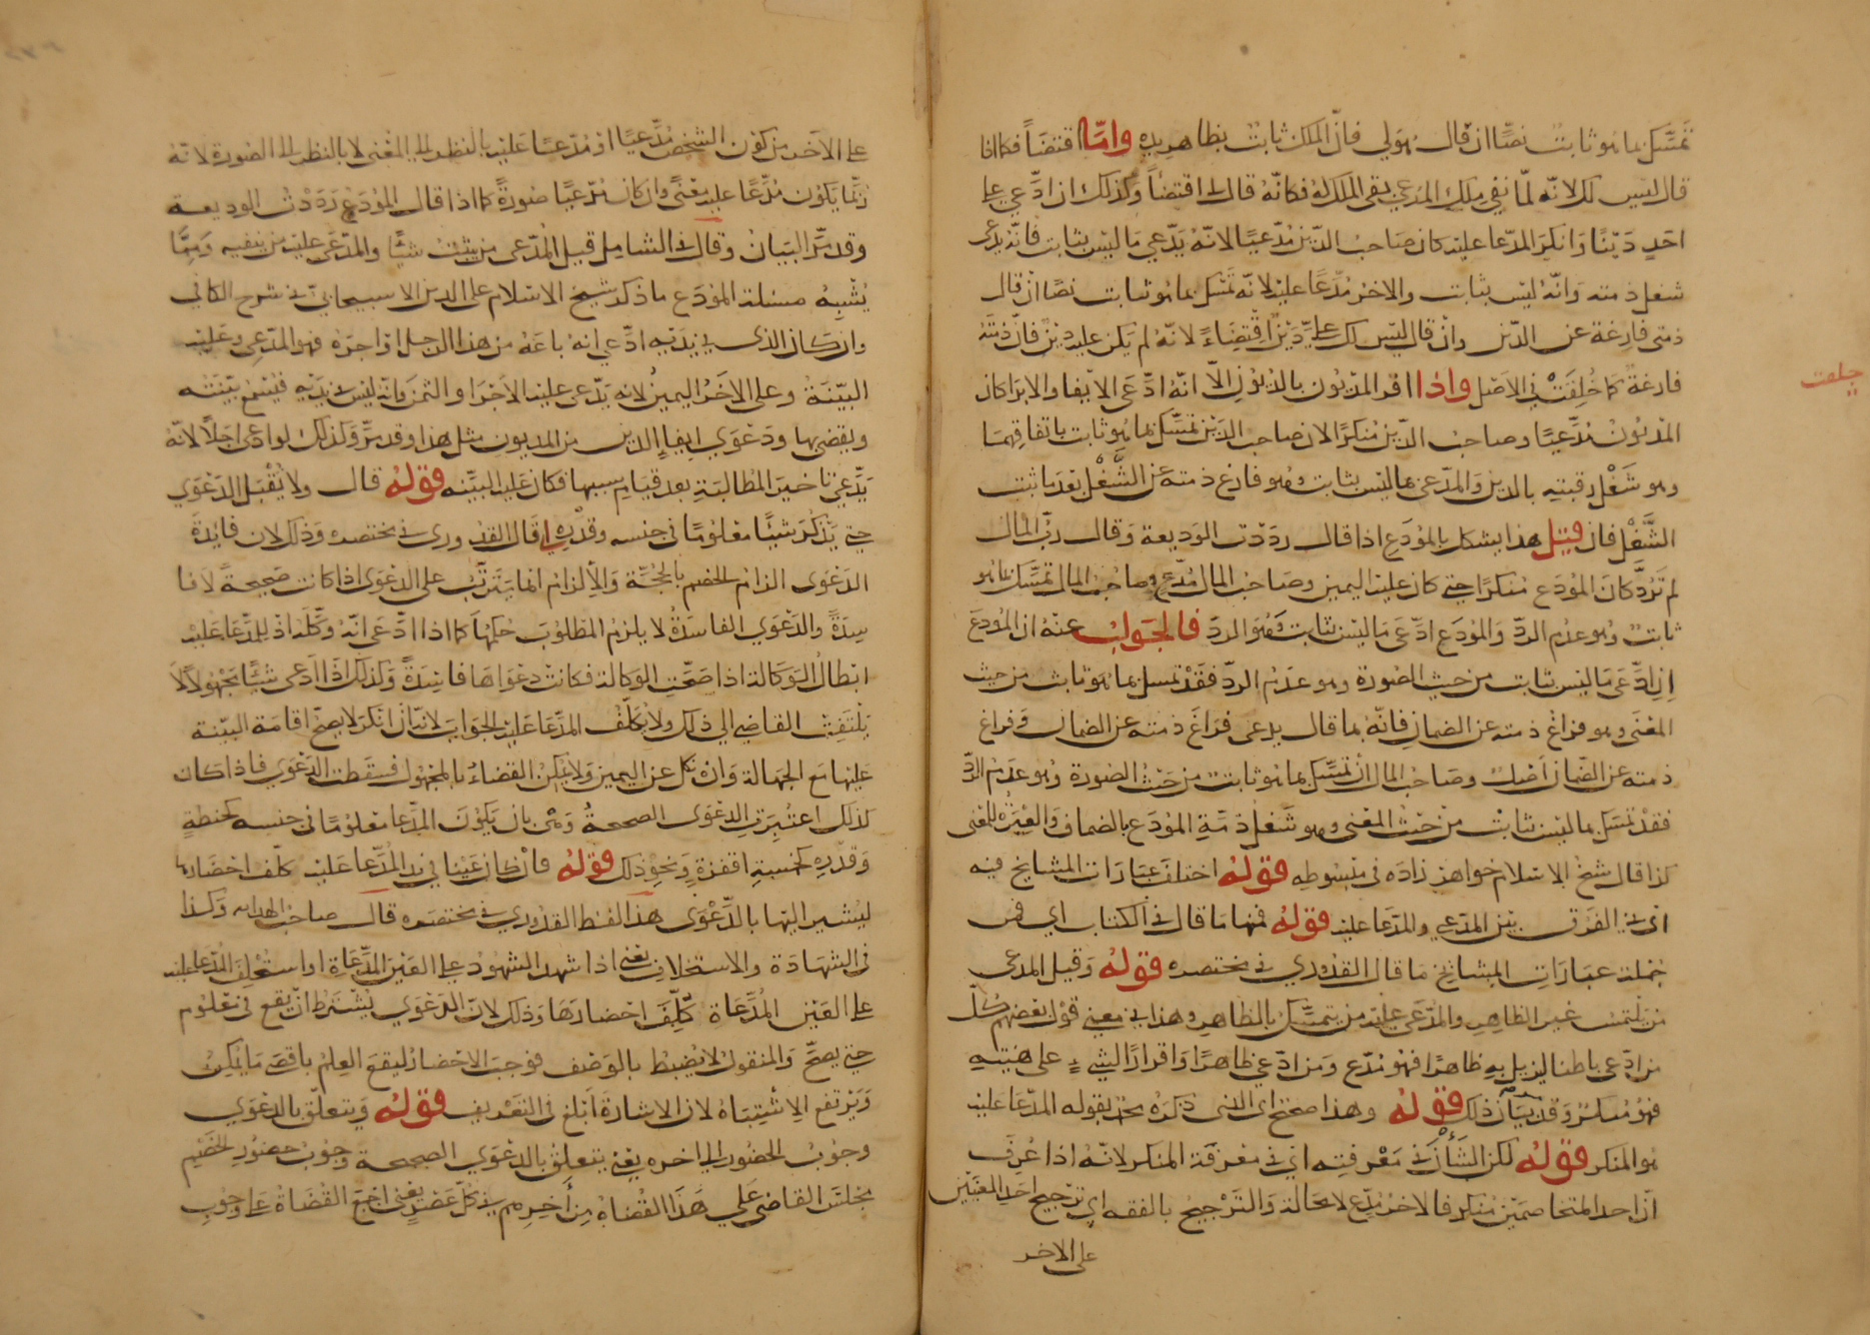 تمسّك بما هو ثابت نصًّا ان قال هو لي فانّ الملك ثابت بظاهر يده وامّا اقتضَاً فكما اذا
قال ليس لك لانّه لمّا نفي ملك المدعي بقى الملك له فكانّه قال لي اقتضاً وكذلك ان ادّعي على
احدٍ دَيْنًا وَانكرَ المدّعا عليه كان صَاحبُ الدّين مُدّعيًا لانّهُ يَدّعي مَا ليسَ بثابت فانّه يدّعي
شغل ذمته وَانّهُ ليس بثابت والاخرُ مُدّعَا عليه لانّه تمسّك بما هو ثابت نصًا ان قال
ذمتى فارغة عن الدّين وان قال ليس لك علىّ دَيْنٌ اقتِضَاءً لانّه لم يكن عليه دينٌ فانّ ذمّتَهُ
فارغةٌ كما خُلِقَتْ في الاَصْل واذا اقر المديُون بالدّيُون الّا انّهُ ادّعَى الايفا والابرا كان
المديُون مُدَّعيًا وصاحبُ الدّين مُنكرًا لان صاحب الدّيْن تمسّك بما هو ثابت باتفاقهما
وهو شَغْل رقبتِهِ بالدين وَالمدّعي بما ليس بثابت وهو فارغ ذمته عن الشَّغْل بعد ما ثبت
الشَّغْل فان قيل هذا يشكل بالمُودَع اذا قال ردّدت الوَديعة وَقال ربُّ المال
لم تَرُدَّ كانَ المُودَع منكرًا حتي كان عليه اليمين وصَاحبُ المال مُدّع وصاحبُ المال تمسَّك بما هو
ثابت وهو عدم الردّ وَالمُودَع ادّعَى مَا ليس بثابت وَهُوَ الردّ فالجَواب عنهُ ان المُودَعَ
اِن ادَّعَى مَا ليس بثابت من حيث الصُورة وهو عدم الردّ فقد تمسك بما هو ثابت من حيث
المعْنَى وهو فراغ ذمته عن الضمان فانّهُ بما قال يدعى فراغَ ذمته عن الضمان وَفراغ
ذمته عن الضّمان اَصْلٌ وصَاحبُ المال ان تمسّك بما هو ثابت من حَيْثُ الصُورة وهو عدم الردّ
فقدْ تمسّك بما ليس ثابت من حَيْثُ المعْنى وهو شَغل ذمّةِ المُودَع بالضمان وَالعِبْرَةُ للمعنى
كذا قال شيْخُ الاسلام خواهر زاده في مَبْسُوطِه قولهُ اختلف عبَارَات المشايخ فيه
اى في الفرق بين المدّعي والمدّعَا عليه قولهُ فمنها مَا قال في الكتاب اي فمن
جُملة عبَارَاتِ المشايخ مَا قال القدُوري في مختصره قولهُ وَقيل المدعى
من يلتمسُ غيرَ الظاهِرِ والمدّعَى عليه من يتمسّك بالظاهرِ وهذا في معنى قوْل بعضهِم كُلّ
من ادّعى باطنا ليزيل بهِ ظاهرًا فهو مُدّعٍ وَمَن ادّعي ظاهرًا وَاقرارًا لشيءٍ على هيئتِهِ
فهو مُنكرٌ وَقد بيّانَّ ذلك قولهُ وهذا صحيح اى الذى ذكرَهُ محمد بقوله المدّعَا عليه
هو المنكر قولهُ لكن الشّأن في مَعْرفتِه اي في معرفة المنكر لانّهُ اذا عُرِفَ
انّ احدَ المتخاصمَيْن مُنكر فالاخرُ مُدّعٍ لا محَالة وَالترْجيحُ بالفقه اي ترجيحُ احَدِ المعْنَيين
على الاخر
جلعت
على الاَخر من كوْن الشخصِ مُدّعيًا او مُدّعىً عليه بالنظر الي المعْنى لا بالنظر الى الصُورة لانّهُ
رُبّما يكوُن مُدّعًا عليهِ مَعْنًى وان كان مُدّعيًا صُورَةً كما اذا قال المُودَعُ رَدَدْتُ الوديعة
وقد مَرَّ البَيانُ وقال في الشامل قيل المُدّعى من يثبت شيئًا والمدّعَى عليه من ينفيه وَمِمّا
يُشْبِهُ مسئلة المُودَع ما ذكره شيخ الاسلام علي الدين الاسبيجابيّ في شرح الكافي
وان كان الذى في يَدَيْهِ ادّعي انهُ باعَهُ من هذا الرجل او آجرَهُ فهو المدّعِي وعَليْه
البيّنَةُ وعلى الاَخَرِ اليمينُ لانه يَدّعى عليهِ الاَجرَ او الثمنَ فانّه ليس في يَدَيْهِ فيُسْمَعُ بيّنَتُه
ويقضى بها ودَعْوَي ايفاءِ الدين من المديون مثل هذا وقد مَرَّ وَكذلك لو ادّعى اجَلاً لانّهُ
يَدَّعي تاخيرَ المُطالبَةِ بعد قيام سببها فكان عَليه البيّنه قولهُ قال ولا يُقْبَل الدعْوَي
حتي يَذْكُرَ شيْئًا معْلُومًا في جنسه وقدْره اي قال القدُوري في مختصره وَذلك لان فايدَةَ
الدَعْوى الزام الخصْم بالحُجّة وَالاِلزام انما يَترتّبُ على الدعْوَى اذا كانت صَحيحةً لا فا
سِدَةً والدَعْوَي الفاسدَةُ لا يلزمُ المطلوُبَ حُكمُهَا كما اذا ادَّعَى انّهُ وَكّلهُ اذ للمدّعَا عَليْه
ابطالُ الوَكالة اذا صَحّت الوكالة فكانت دَعْوَاهَا فاسِدَةً وكذلك اذا ادّعى شيئًا مَجْهُولاً لا
يَلتَفِتُ القاضي الي ذلك ولا يُكلّفُ المدّعَا عَليْه الجوَابَ لانّه ان انكرَ لا يصحّ اقامَة البيّنة
عَليها مَع الجَهالة وَان نكل عن اليمين وَلا يمكنُ القضاءُ بالمجهُول فسَقطت الدَعْوَي فاذا كان
كذلك اعتُبِرَت الدَعْوَى الصحيحةُ وهْي بان يَكُونَ المدّعا معْلُومًا في جنسه كحنطةٍ
وَقدْرِهِ كخمسةِ اقفزةٍ وَنحو ذلك قولهُ فان كان عَيْنًا في يد المدّعا عَليه كلّف احضارَها
ليُشير اليها بالدّعْوَى هذا لفظ القدُوري في مختصَره قال صاحب الهدايه وَكذا
في الشهَادَة والاستحلاف يَعْني اذا شهد الشهُود على العَيْن المدّعَاةِ او اسْتُحْلِفَ المدّعا عليه
على العَيْن المُدّعَاة كُلِّفَ احْضارَهَا وَذلك لانّ الدَعْوَي يُشْتَرطُ انْ يقع في معْلُوم
حتي يصحَّ وَالمنقوُل لا يُضبطُ بالوَصْف فوَجبَ الاحْضارُ ليقعَ العِلمُ باقصَى مَا يُمكِنُ
وَيَرْتفع الاِشْتِبَاهُ لان الاشارة اَبْلغ في التعْريف قولهُ وَيتعلّق بالدعْوَى
وجُوبُ الحُضُور الي اخره يَعْني يتعلق بالدعْوَي الصحيحة وجُوب حضُور الخَصْم
مَجْلسَ القاضي عَلي هَذا القُضاةُ مِن اَخِرِهم في كُلّ عَصْرٍ يَعْني اجمَع القُضَاةُ عَلى وجُوبِ